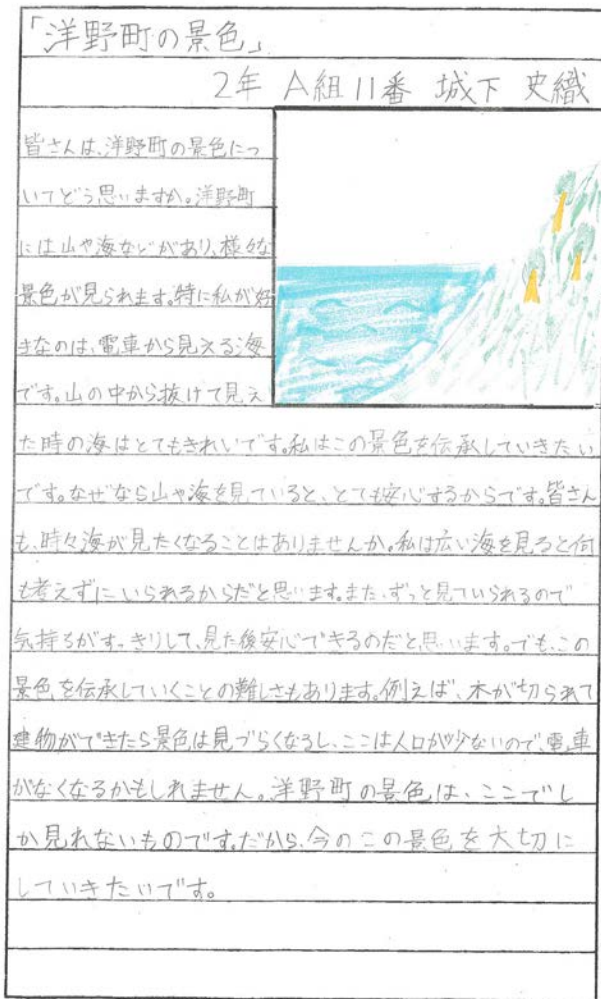 「洋野町の景色」
2年 A組 11番 城下 史織
皆さんは、洋野町の景色につ
いてどう思いますか。洋野町
には山や海などがあり、様々な
景色が見られます。特に私が好
きなのは、電車から見える海
です。山の中から抜けて見え
た時の海はとてもきれいです。私はこの景色を伝承していきたい
です。なぜなら山や海を見ていると、とても安心するからです。皆さん
も、時々海が見たくなることはありませんか。私は広い海を見ると何
も考えずにいられるからだと思います。また、ずっと見ていられるので
気持ちがすっきりして、見た後安心できるのだと思います。でも、この
景色を伝承していくことの難しさもあります。例えば、木が切られて
建物ができたら景色は見づらくなるし、ここは人口が少ないので、電車
がなくなるかもしれません。洋野町の景色は、ここでし
か見れないものです。だから、今のこの景色を大切に
していきたいです。